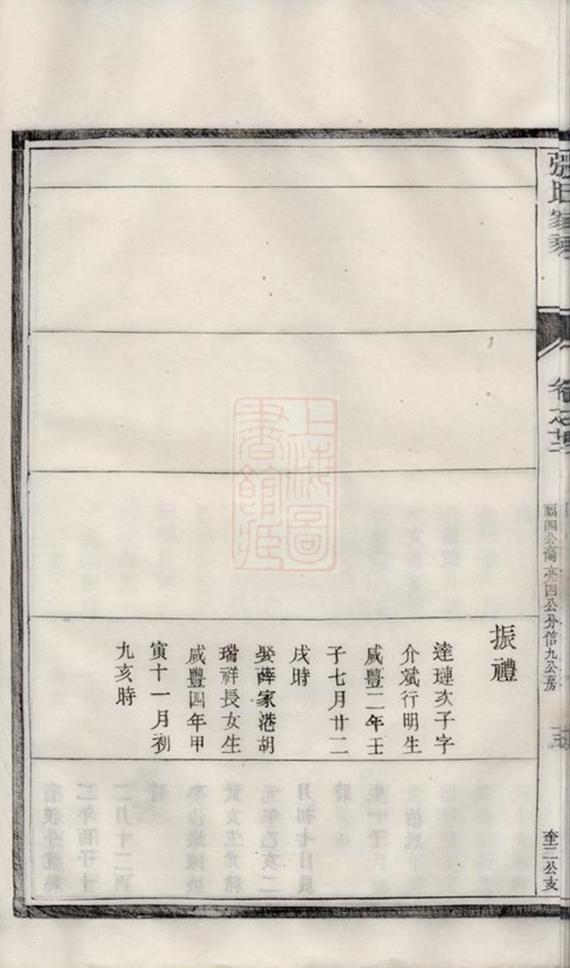 張氏家乘
卷之
福四公裔亮四公分信九公房
奎二公支
振禮
達璉次子字
介斌行明生
咸豐二年壬
子七月廿二
戌時
娶薛家港胡
瑞祥長女生
咸豐四年甲
寅十一月初
九亥時
上海圖
書館藏